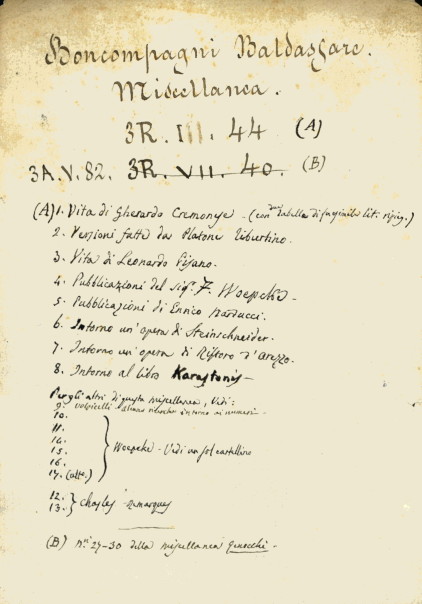 Boncompagni Baldassare.
Miscellanea.
3R. III. 44 (A)
3A.V.82. 3R. VII. 40. (B)
(A) 1. Vita di Gherardo Cremonese - (con tabella di facsimile lit.
2. Versioni fatte da Platone Tiburtino.
3. Vita di Leonardo Pisano.
4. Pubblicazioni del sig. F. Woepcke -
5. Pubblicazioni di Enrico Narducci.
6. Intorno un'opera di Steinschneider.
7. Intorno un'opera di Ristoro d'Arezzo.
8. Intorno al libro Karastonis -
Per gli altri di questa miscellanea, Vedi:
9. Volpicelli Alcune ricerche intorno ai numeri -
10.
11.
14.
15. Woepcke - Vedi un sol cartellino
16.
17. (
12.
13. } Chasles - Remarques
(B) nⁱ 27-30 della miscellanea Genocchi -